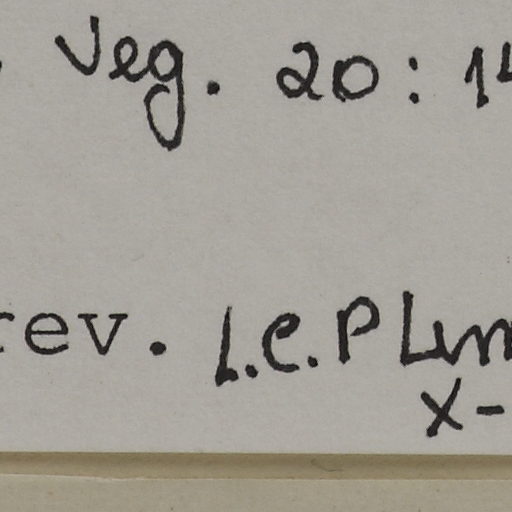 Veg. 20: 14
rev. L.C.P Lum
X-